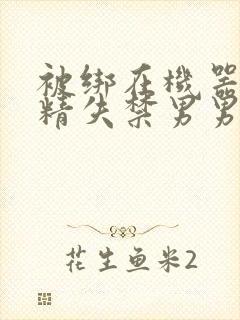 被绑在機器
精失禁男男
花生鱼米2